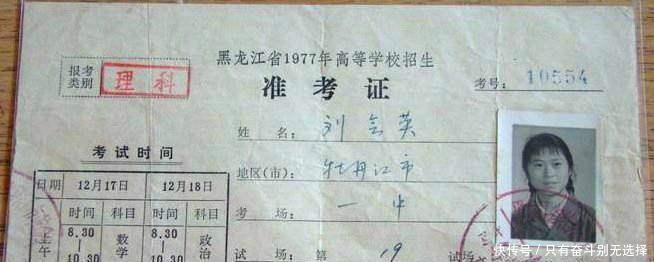 黑龙江省1977年高等学校招生
报考
类别
理科
准考证
考号: 10554
姓名: 刘会英
地区(市): 牡丹江市
考场: 一中
试场: 第19
考试时间
日期 12月17日 12月18日
时间 科目 时间 科目
上午 8.30 数学 8.30 政治
10.30 10.30
快传号/只有奋斗别无选择